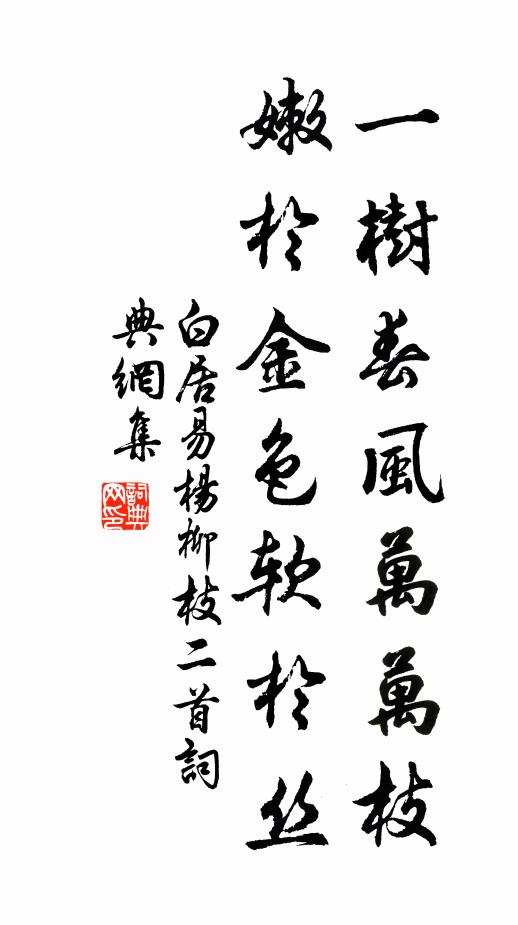 一樹春風萬萬枝
嫩於金色軟於丝
白居易楊柳枝二首詞
典網集
詞典网印